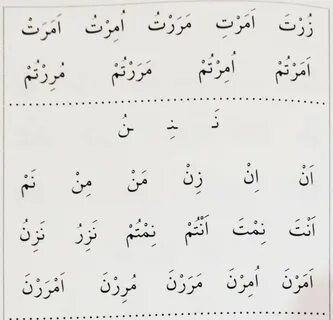 زُرْتَ اَمَرْتِ مَرَرْتُ اُمِرْتُ اَمَرَتْ
اَمَرْتُمْ اُمِرْتُمْ مَرَرْتُمْ مُرِرْتُمْ
نَ نِ نُ
اَنْ اِنْ زِنْ مَنْ مِنْ نَمْ
اَنْتَ نِمْتَ اَنْتُمْ نِمْتُمْ نَزِرُ نَزِنُ
اَمَرْنَ اُمِرْنَ مَرَرْنَ مُرِرْنَ اَمْرَرْنَ